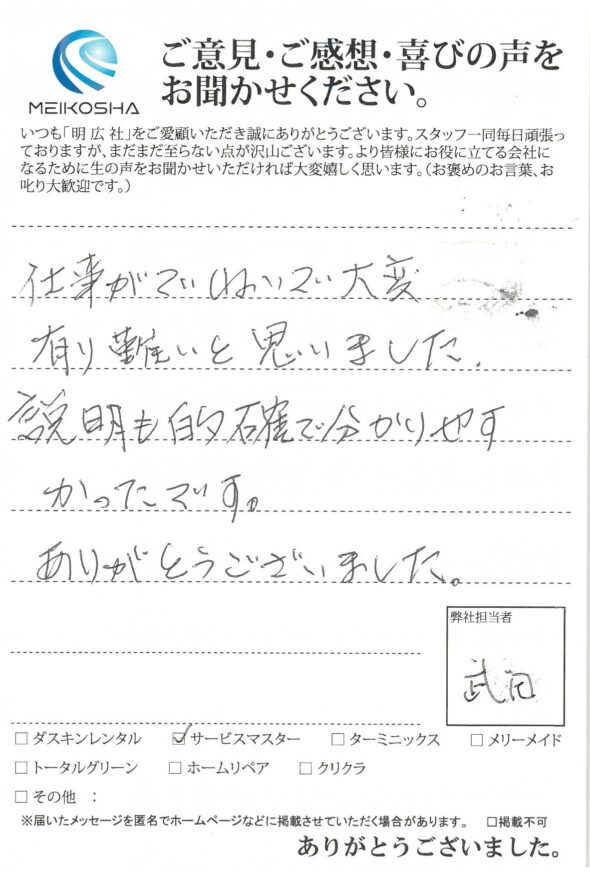 ご意見・ご感想・喜びの声を
お聞かせください。
MEIKOSHA
いつも「明広社」をご愛顧いただき誠にありがとうございます。スタッフ一同毎日頑張っ
ておりますが、まだまだ至らない点が沢山ございます。より皆様にお役に立てる会社に
なるために生の声をお聞かせいただければ大変嬉しく思います。（お褒めのお言葉、お
叱り大歓迎です。）
仕事がていねいでい大変
有り難いと思いました。
説明も的確で分かりやす
かったです。
ありがとうございました。
弊社担当者
武田
□ ダスキンレンタル ☑ サービスマスター □ ターミニックス □ メリーメイド
□ トータルグリーン □ ホームリペア □ クリクラ
□ その他 ：
※届いたメッセージを匿名でホームページなどに掲載させていただく場合があります。 □掲載不可
ありがとうございました。